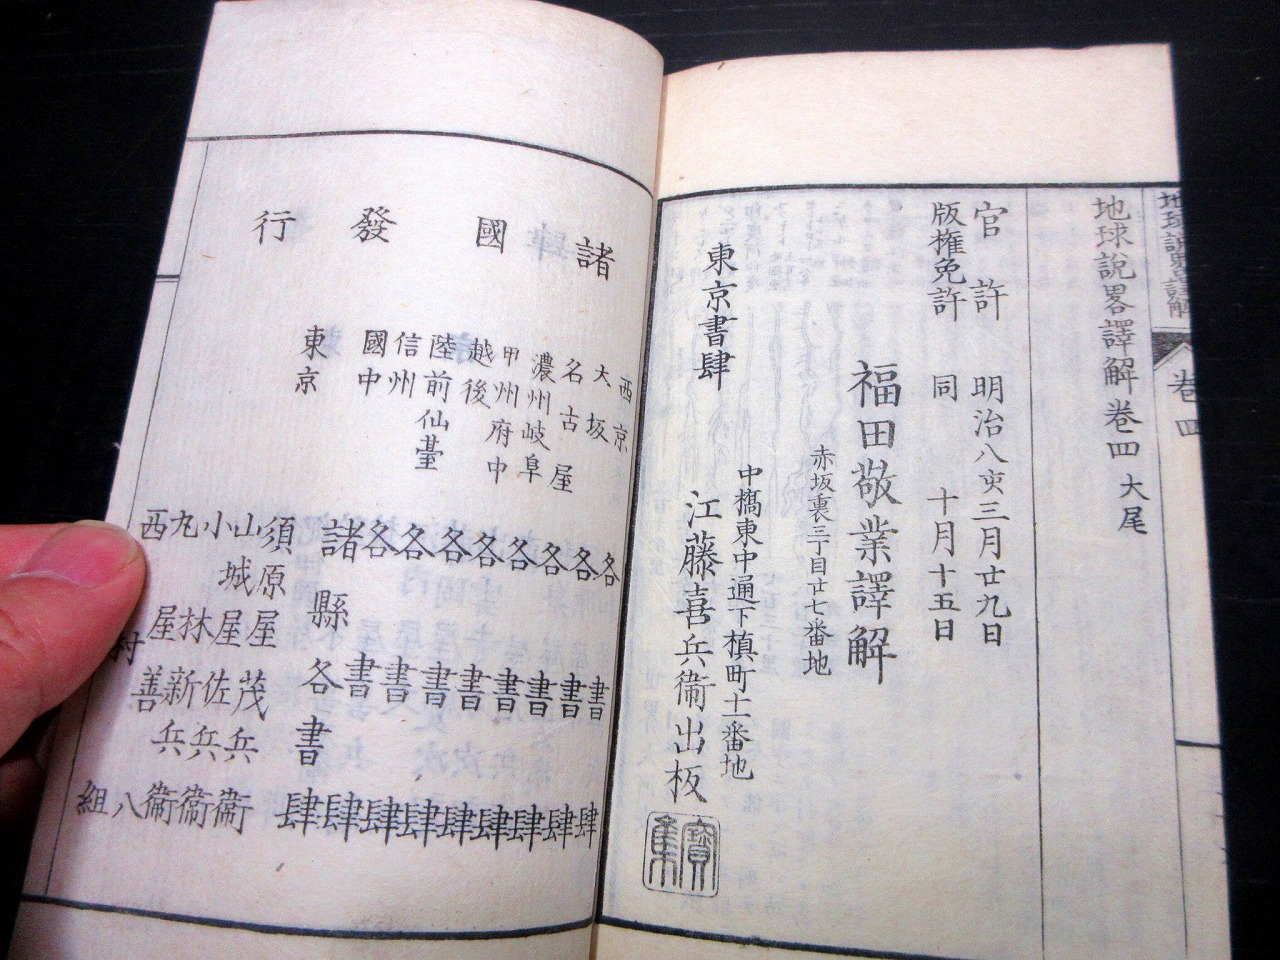 地球說畧譯解 卷四
地球說畧譯解卷四 大尾
官許 明治八亥三月廿九日
版權免許 同 十月十五日
福田敬業譯解
赤坂裏三丁目廿七番地
中橋東中通下槙町十一番地
東京書肆 江藤喜兵衞出板
寶集
諸國發行
西京 各書肆
大坂 各書肆
名古屋 各書肆
濃州岐阜 各書肆
甲州府中 各書肆
越後 各書肆
陸前仙臺 各書肆
信州 各書肆
國中 諸縣各書肆
東京 須原屋茂兵衞
山城屋佐兵衞
小林新兵衞
丸屋善八
西村組